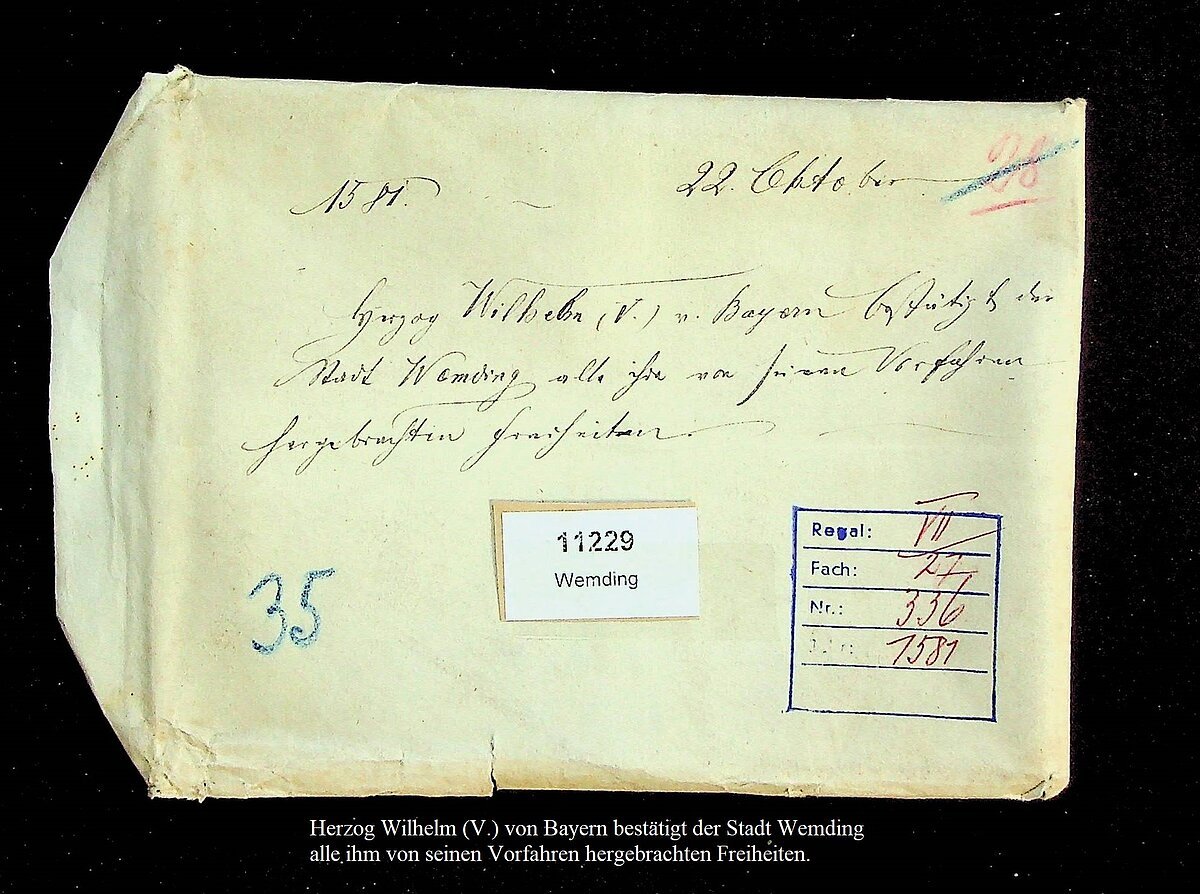 1581. 22. Oktober. 28
Herzog Wilhelm (V.) v. Bayern bestätigt der
Stadt Wemding alle ihr von seinen Vorfahren
hergebrachten Freiheiten.
11229
Wemding
35
Regal: VII
Fach: 27
Nr.: 336
1581
Herzog Wilhelm (V.) von Bayern bestätigt der Stadt Wemding
alle ihm von seinen Vorfahren hergebrachten Freiheiten.